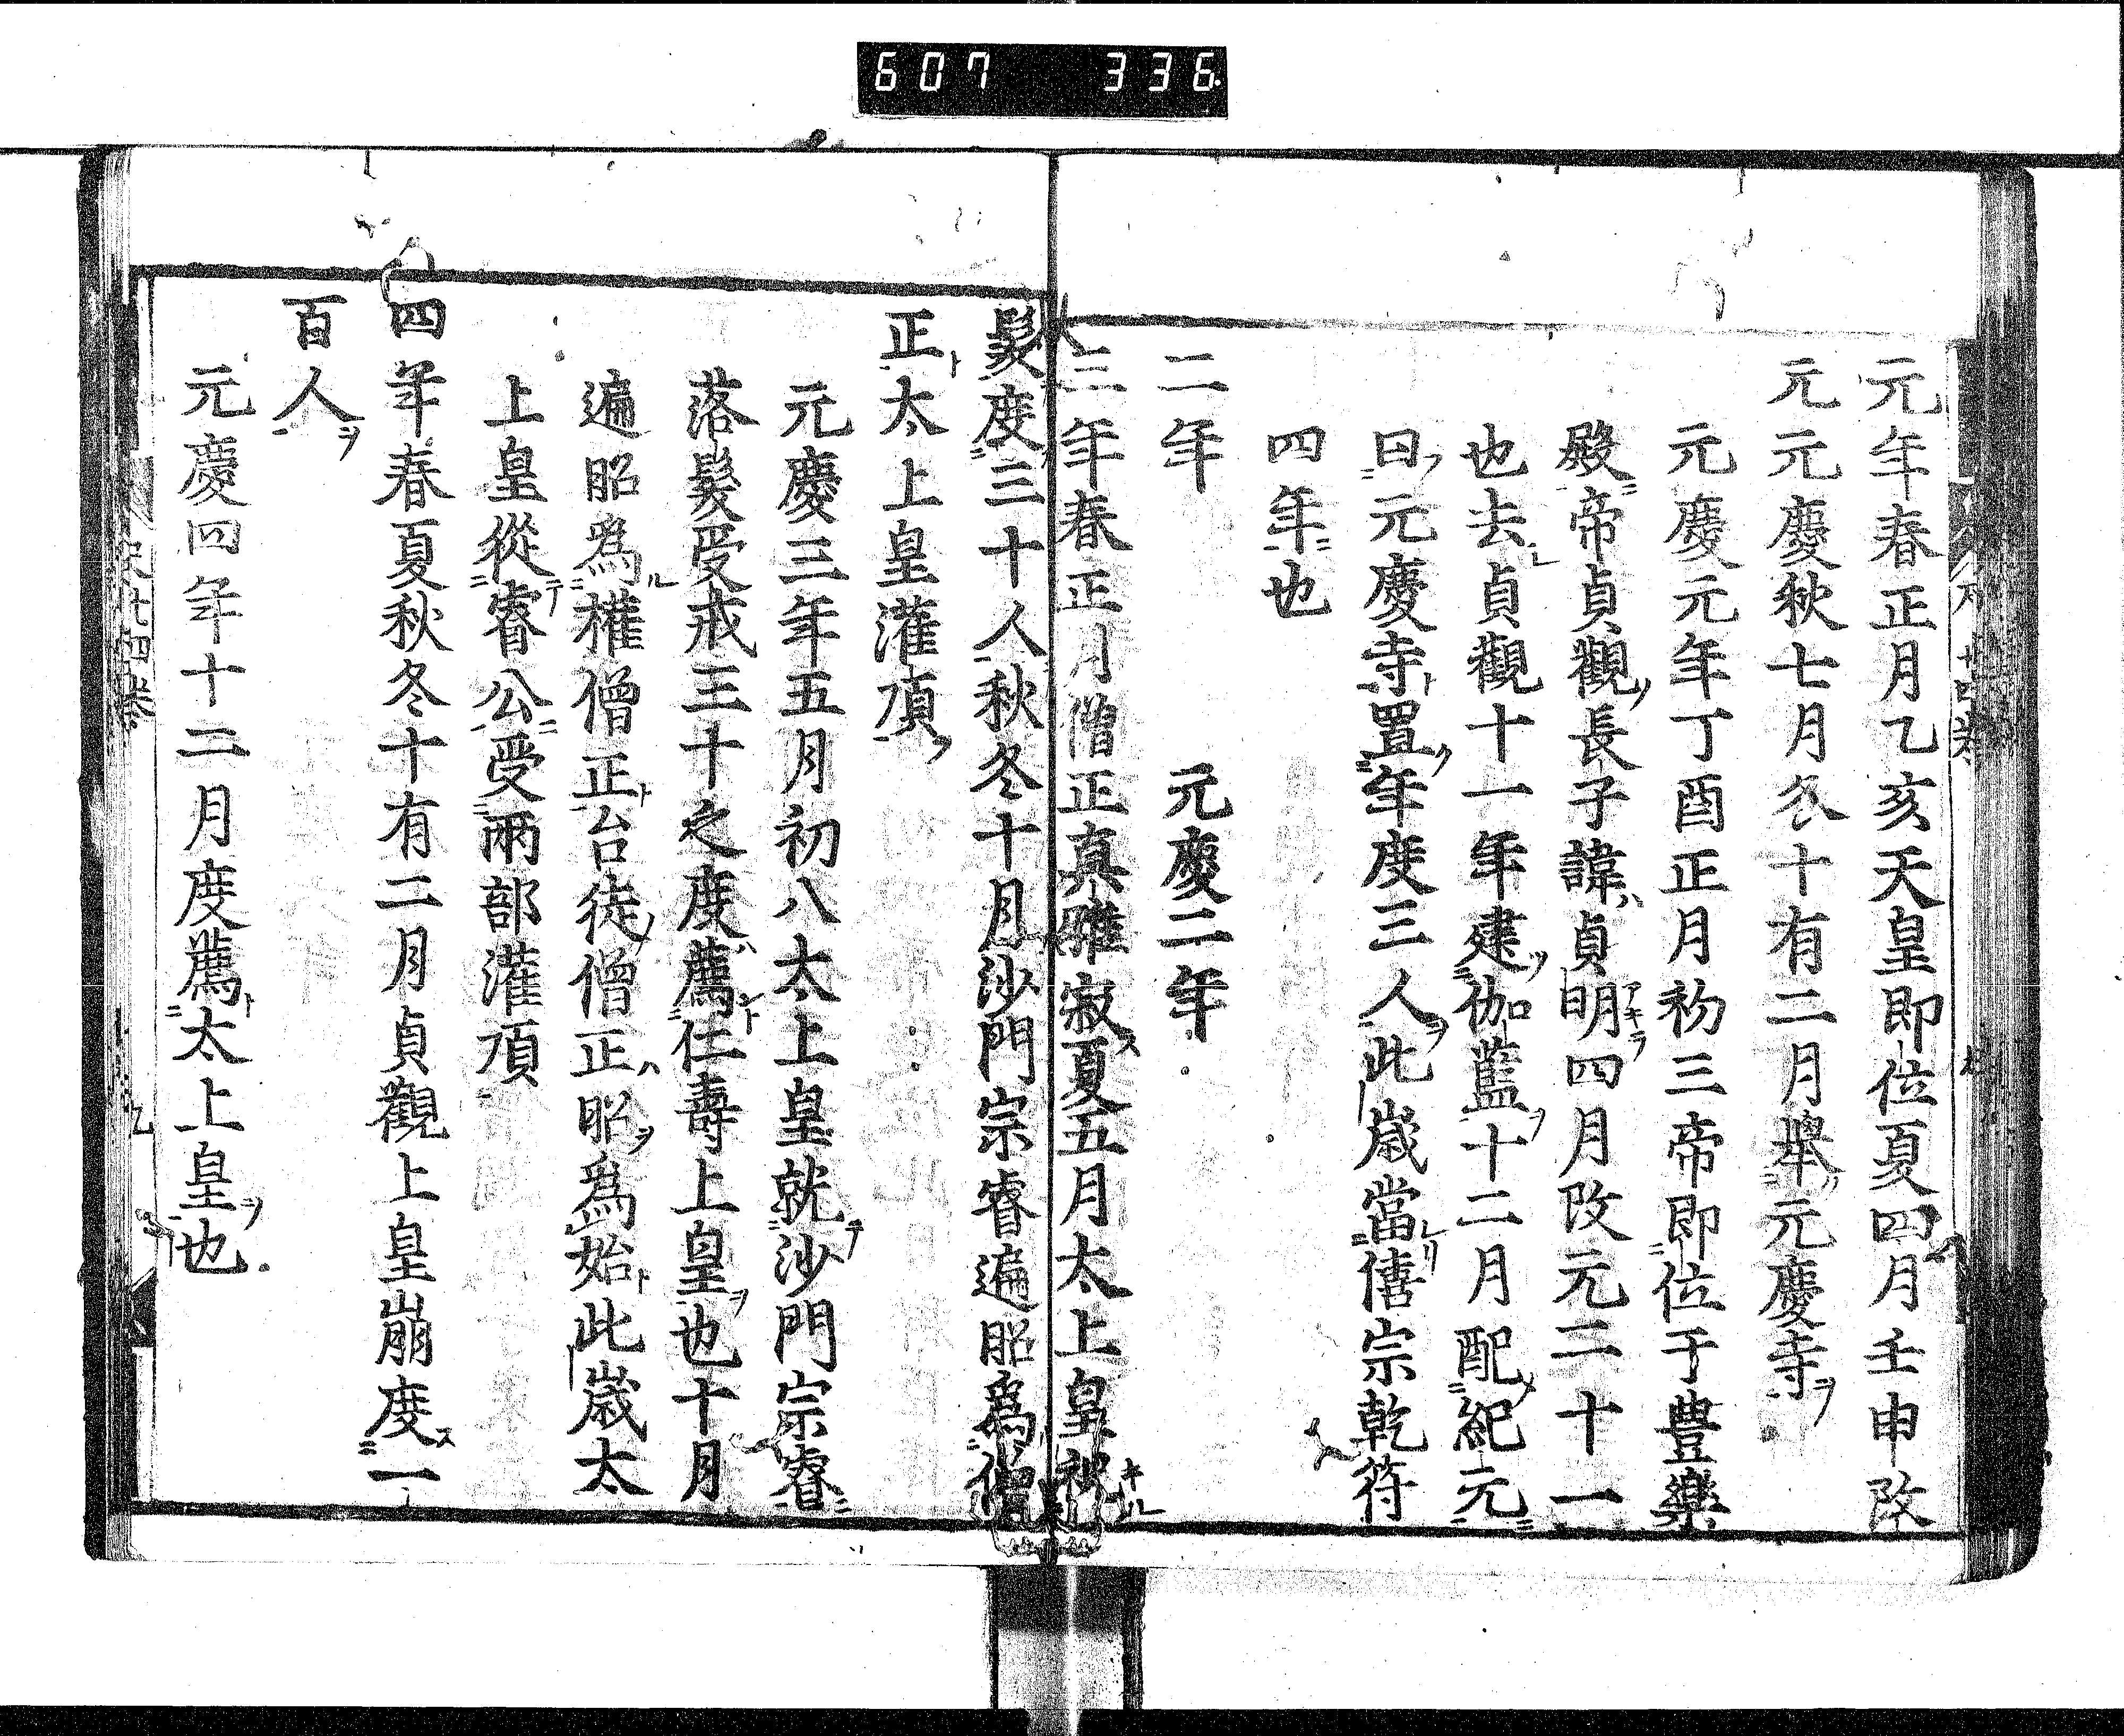 607 336
元年春正月乙亥天皇即位夏四月壬申改
元元慶秋七月冬十有二月舉元慶寺ヲ
元慶元年丁酉正月初三帝即位于豊樂
殿帝貞觀ノ長子諱ハ貞明アキラ四月改元二十一
也去貞觀十一年建伽藍ヲ十二月配紀元
曰元慶寺ト置年度三人ヲ此歳當僖宗乾符
四年也
二年 元慶二年
三年春正月僧正真雅寂ス夏五月太上皇
髮度三十人秋冬十月沙門宗睿遍昭爲僧
正ト太上皇灌頂
元慶三年五月初八太上皇就テ沙門宗睿
落髮受戒三十之度ハ薦仁壽上皇ヲ也十月
遍昭爲ル權僧正ト台徒ノ僧正ハ昭ヲ爲始ト此歳太
上皇從テ睿公受兩部灌頂
四年春夏秋冬十有二月貞觀上皇崩度ス一
百人ヲ
元慶四年十二月度薦ト太上皇ヲ也